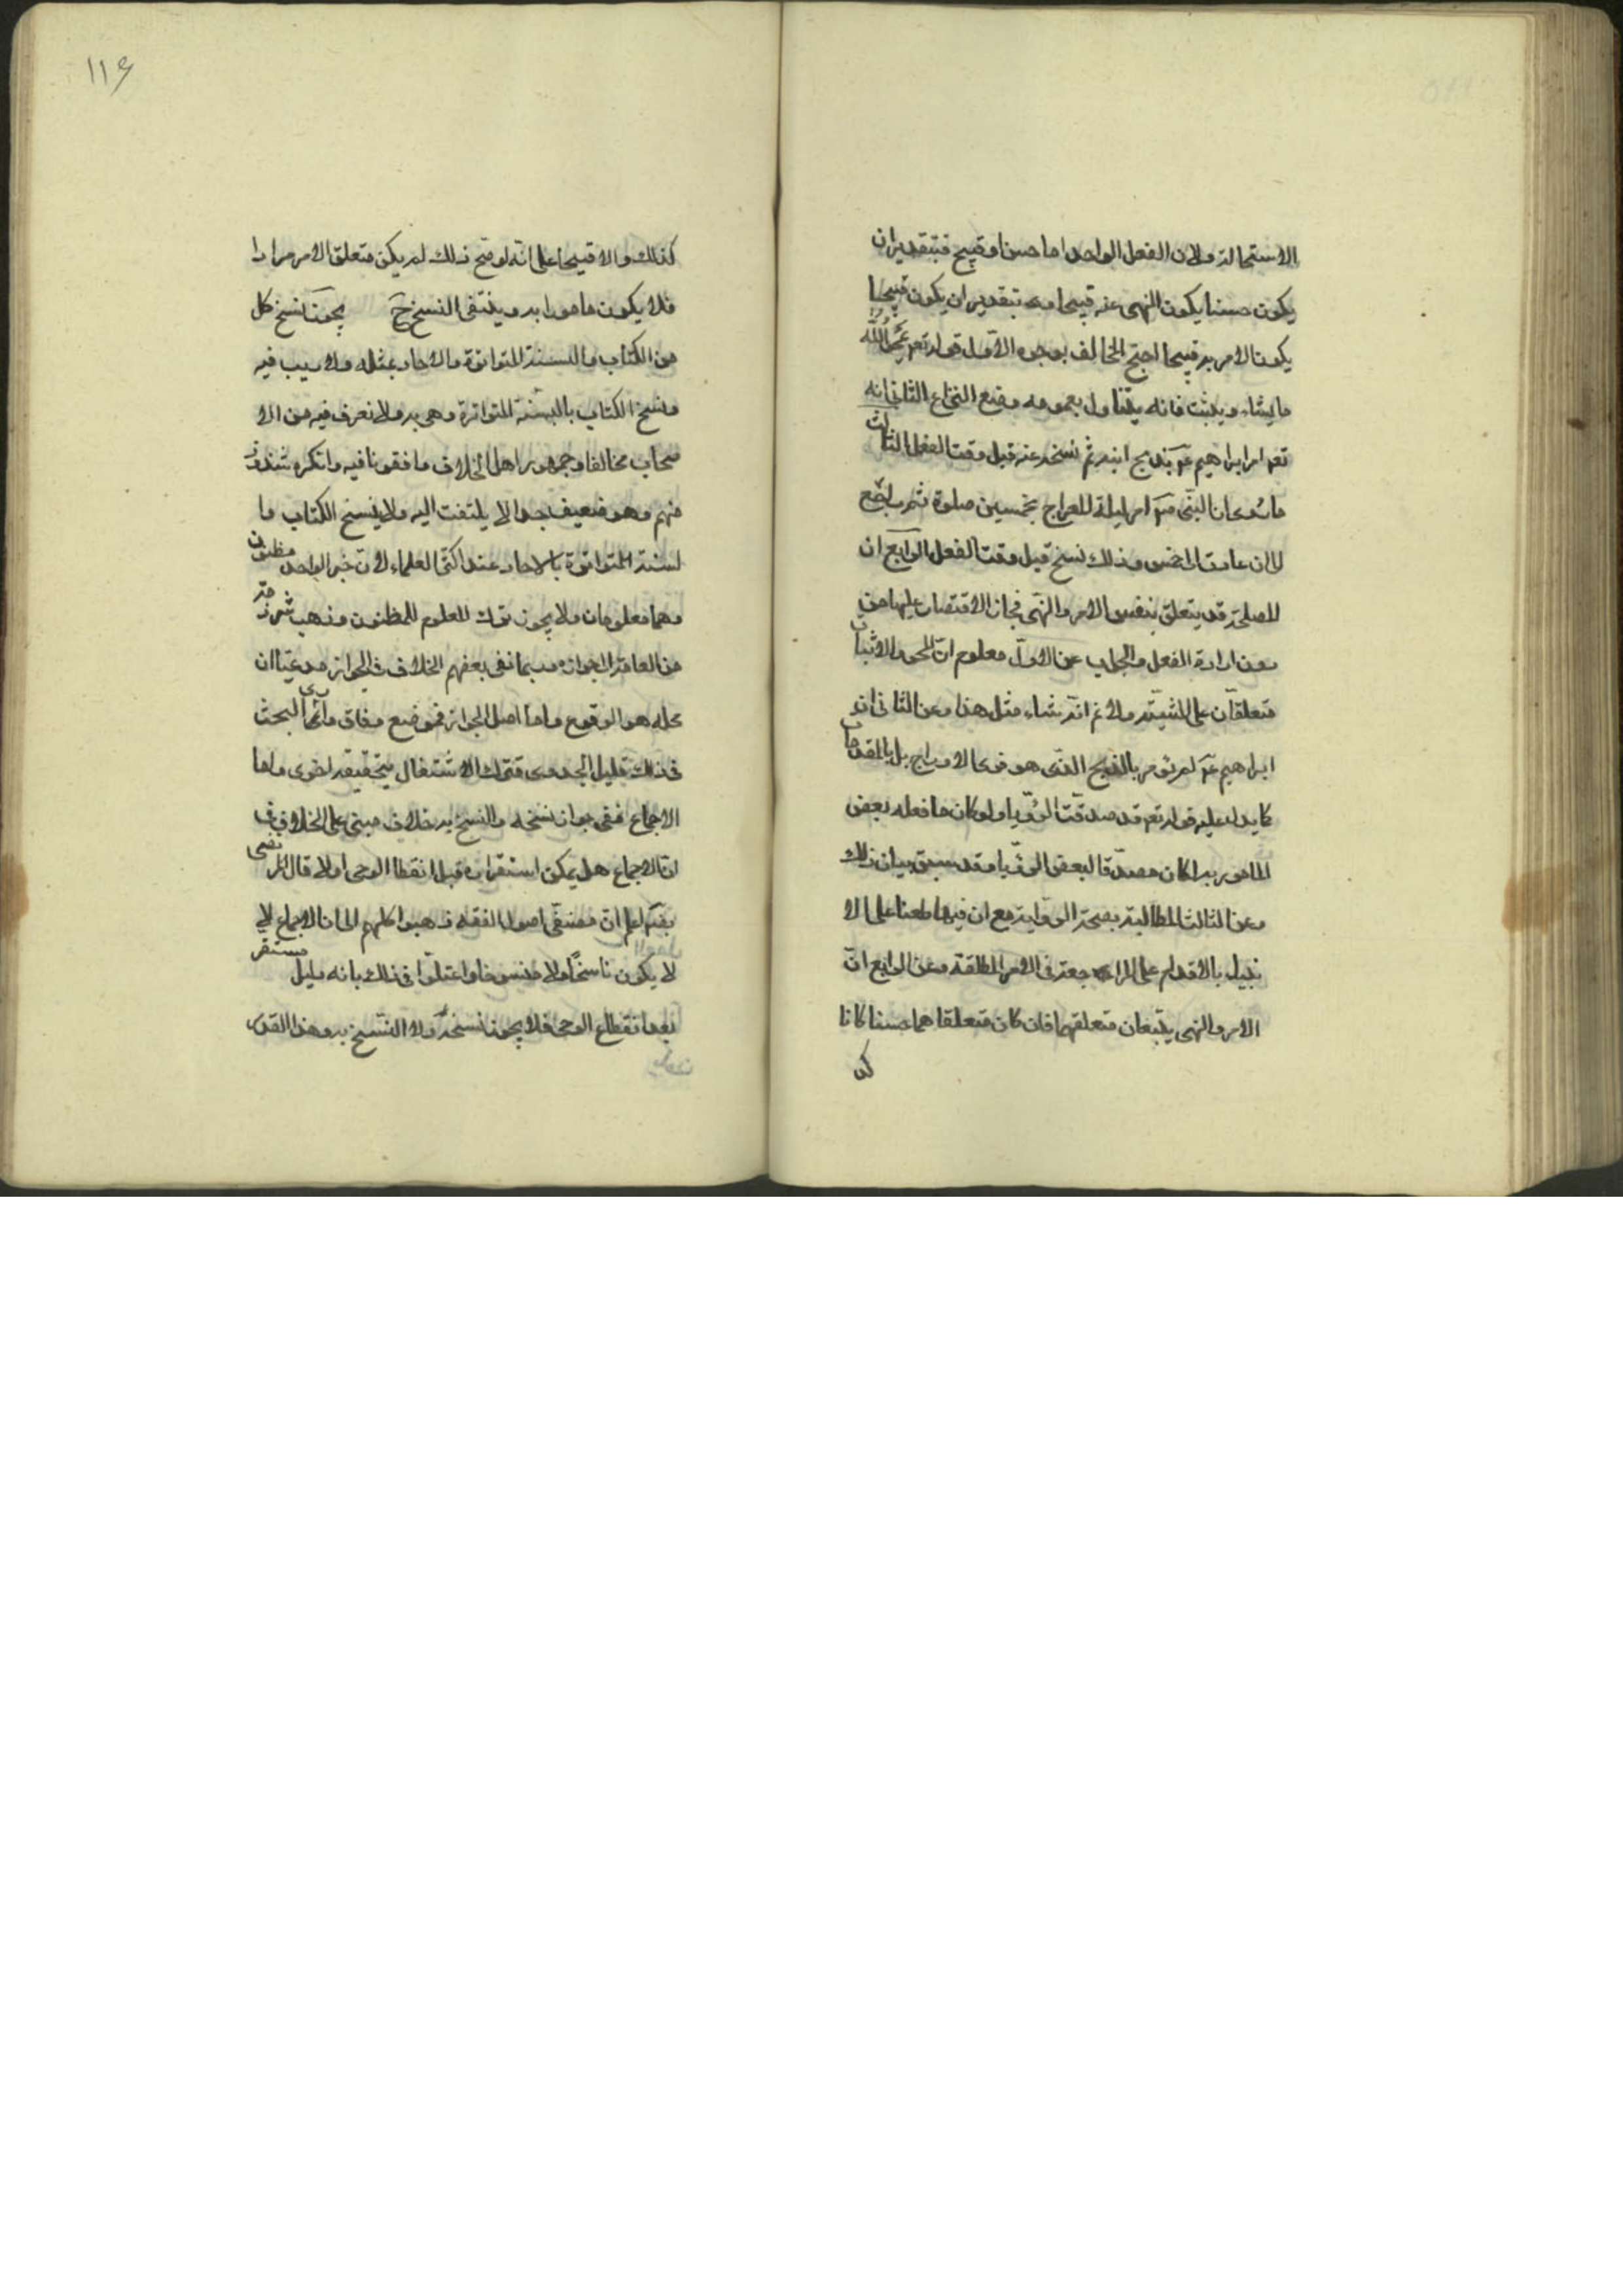 الاستحالة ولان الفعل الواحد اما حسن او قبيح فبتقدير ان
يكون حسنا يكون النهى عنه قبيحا و بتقدير ان يكون قبيحا
يكون الامر به قبيحا احتج المخالف بوجوه الاول قوله تعم يمحو الله
ما يشاء ويثبت فانه يتناول بعمومه موضع النزاع الثانى انه
تعم امر ابراهيم عم بذبح ابنه ثم نسخه عنه قبل وقت الفعل الثالث
ما روى ان النبى ص امر ليلة المعراج بخمسين صلوة ثم راجع
الى ان عادت الى خمس وذلك نسخ قبل وقت الفعل الرابع ان
المصلحة قد يتعلق بنفس الامر والنهى فجاز الاقتصار عليهما من
دون ارادة الفعل والجواب عن الاول معلوم ان المحو والاثبات
متعلقان على المشية ولانم انه شاء مثل هذا وعن الثانى ان
ابراهيم عم لم يؤمر بالذبح الذى هو فرى الاوداج بل بالمقدمات
كما يدل عليه قوله تعم قد صدقت الرؤيا ولو كان ما فعله بعض
المامور به لكان مصدقا لبعض الرؤيا وقد سبق بيان ذلك
وعن الثالث المطالبة بصحة الرواية مع ان فيها طعنا على الا
نبياء بالاقدام على المراجعة فى الاوامر المطلقة وعن الرابع ان
الامر والنهى يتبعان متعلقهما فان كان متعلقاهما حسنا كانا
كذ
١١٦
كذلك والا قبيحا على انه لو صح ذلك لم يكن متعلق الامر مرادا
فلا يكون مامورا به وينتفى النسخ ح يجوز نسخ كل
من الكتاب والسنة المتواترة والاحاد بمثله ولا ريب فيه
ونسخ الكتاب بالسنة المتواترة وهى به ولا نعرف فيه من الا
صحاب مخالفا وجمهور اهل الخلاف وافقونا فيه وانكره شذوذ
منهم وهو ضعيف جدا لا يلتفت اليه ولا ينسخ الكتاب وا
لسنة المتواترة بالاحاد عند اكثر العلماء لان خبر الواحد مظنون
وهما معلومان ولا يجوز ترك المعلوم للمظنون وذهب شرذمة
من العامة الى جوازه وربما نفى بعضهم الخلاف فى الجواز مدعيا ان
محله هو الوقوع واما اصل الجواز فموضع وفاق وارى البحث
فى ذلك قليل الجدوى فترك الاشتغال بتحقيقه احرى واما
الاجماع ففى جواز نسخه والنسخ به خلاف مبنى على الخلاف فى
ان الاجماع هل يمكن استقراره قبل انقطاع الوحى او لا قال المرتضى
رضى اعلم ان مصنفى اصول الفقه ذهبوا كلهم الى ان الاجماع
لا يكون ناسخا ولا منسوخا واعتلوا فى ذلك بانه دليل مستقر
بعد انقطاع الوحى فلا يجوز نسخه ولا النسخ به وهذا القدر